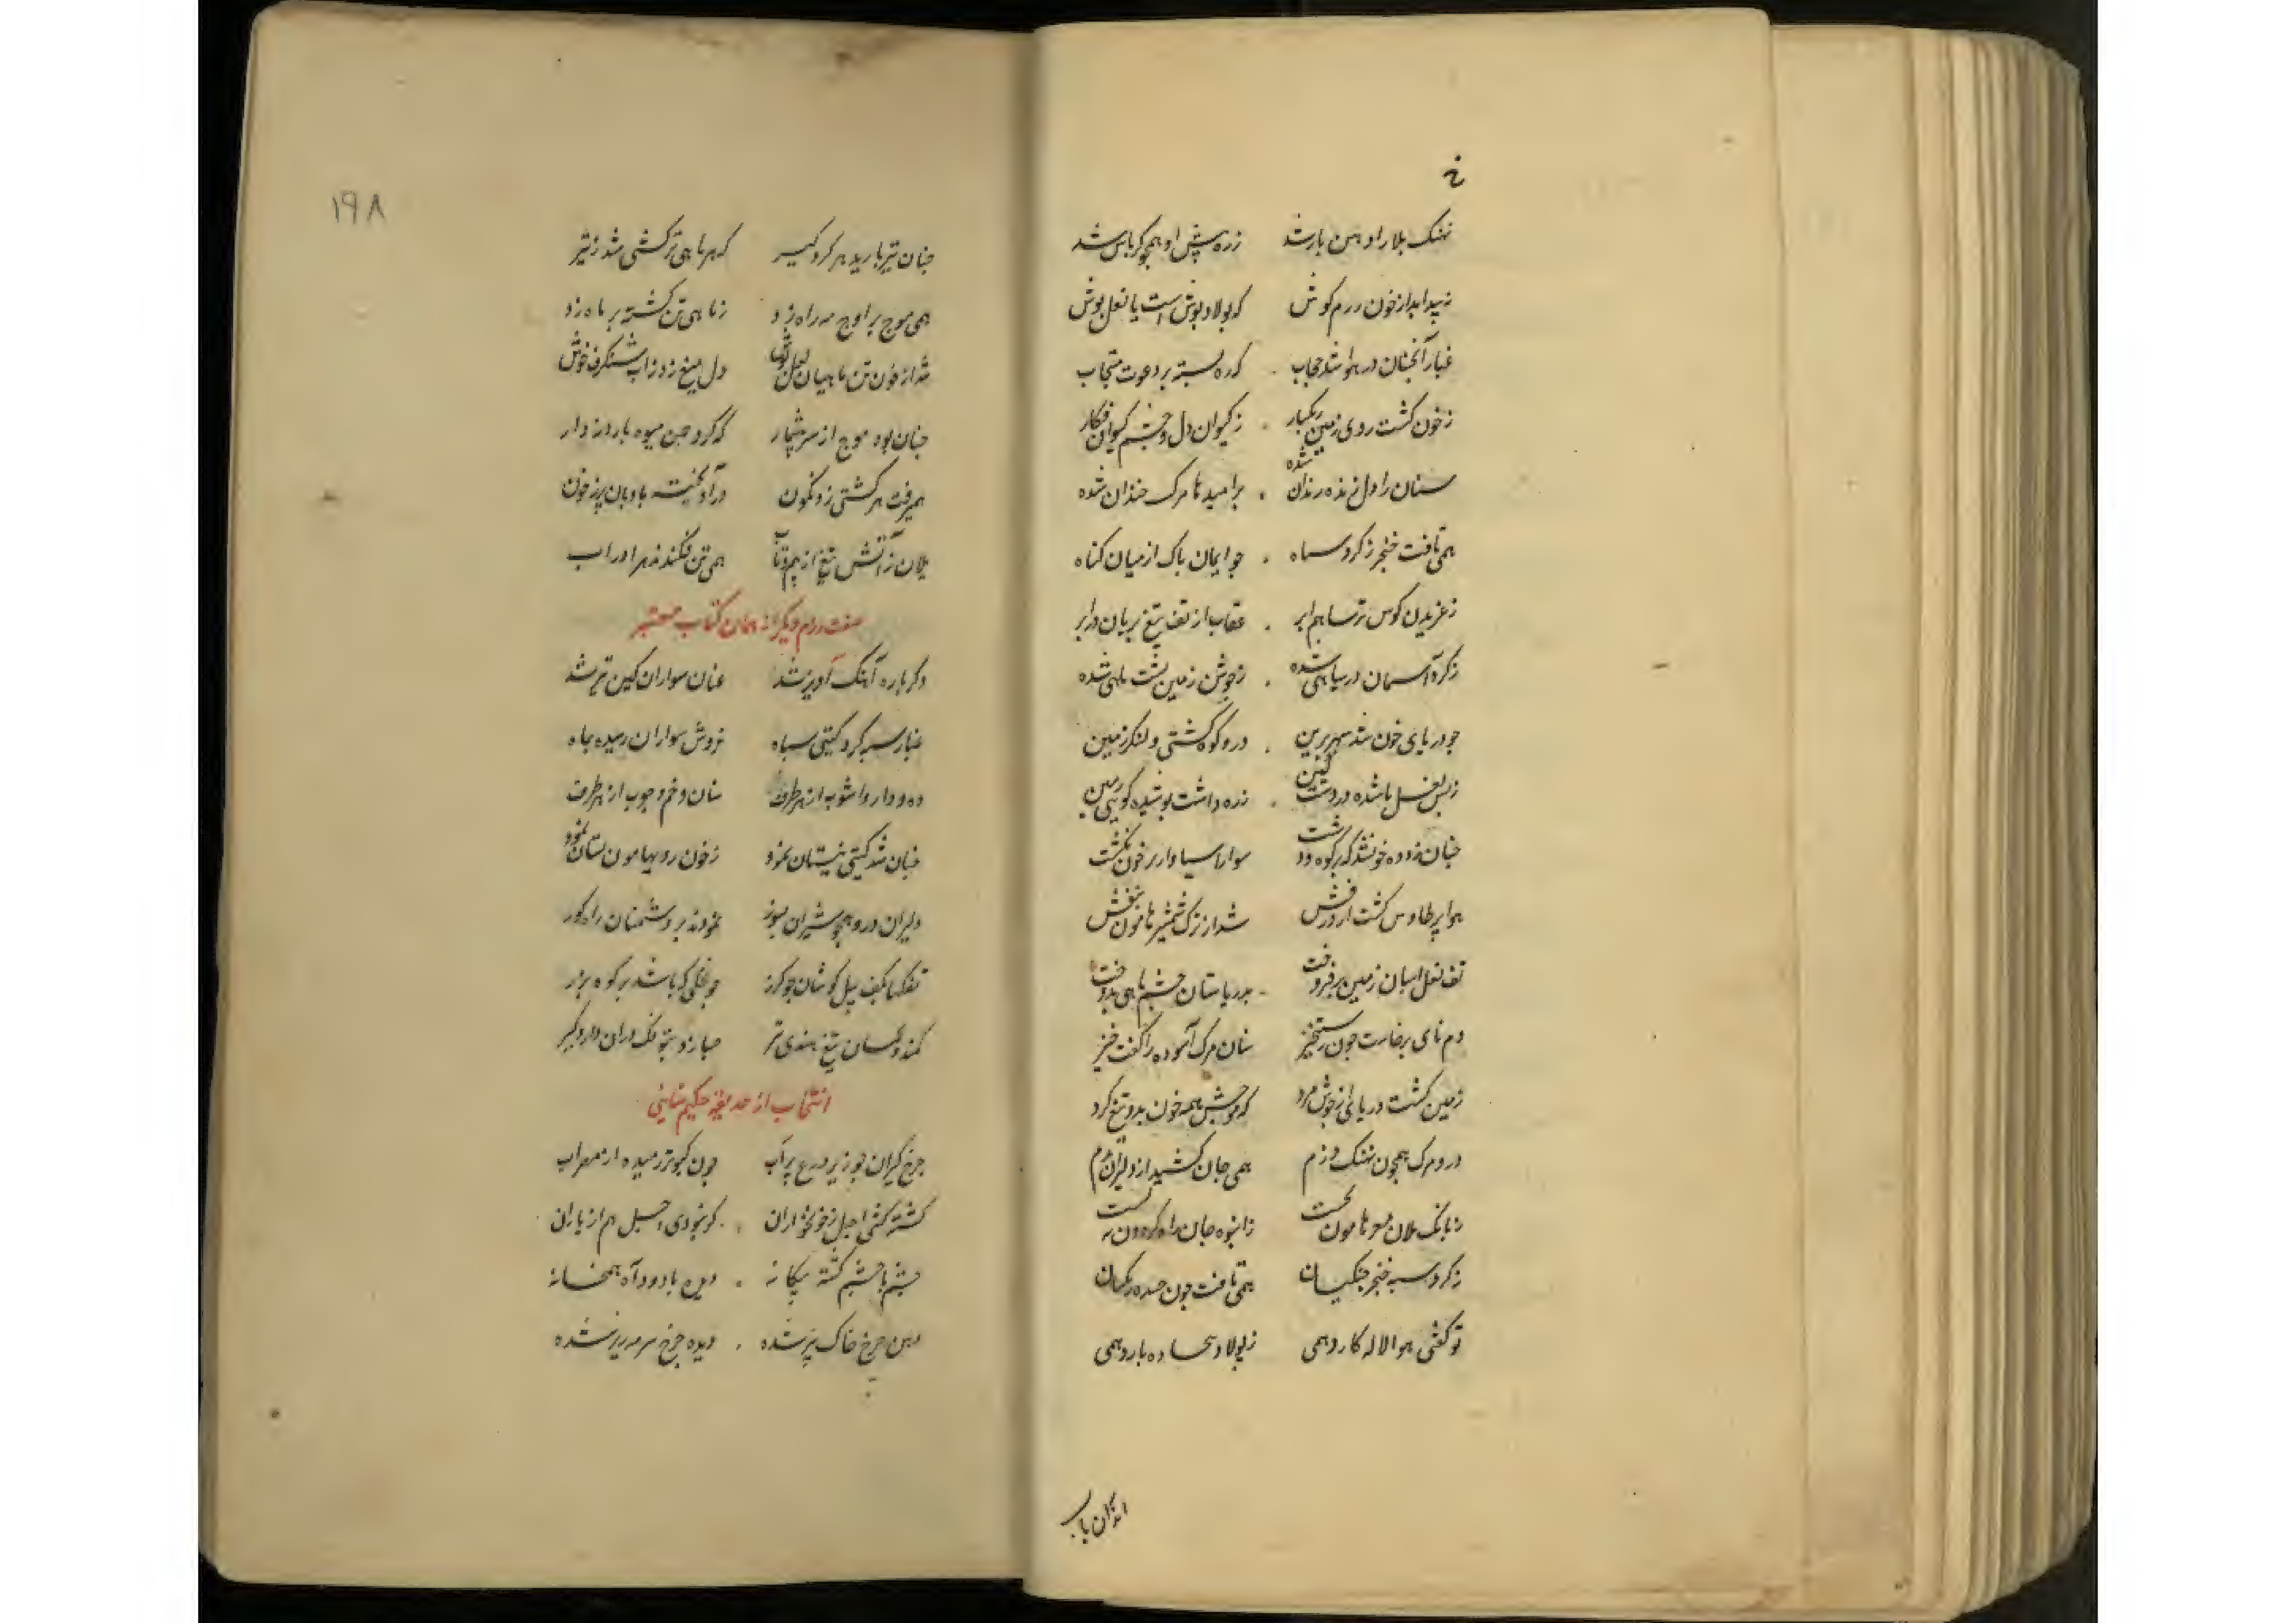 نهنک بلا را دهن باز شد زره پیش او همچو کرباس شد
ز پیدا بد از خون درم کوش که پولاد پوش است یا نعل پوش
غبار آنچنان در هوا شد حجاب که ره بسته بر دعوت مستجاب
ز خون کشت روی زمین ز کیوان دل و چشم کیوان فکار
سنان را دل زنده زندان شده بر امیدها مرک خندان شده
همی تافت خنجر ز کرد سپاه چو ایمان پاک از میان کناه
ز غریدن کوس ترسا هزبر عقاب از تف تیغ بریان در ابر
ز کرد آسمان در سیاهی شده ز جوش زمین پشت ماهی شده
چو دریای خون شد سپهر برین درو کوه کشتی و لنکر زمین
ز بس نعل باشده در دشت کین زره داشت پوشیده کویی زمین
چنان زد دوده خون شد که بر کوه و دشت سوار آسیاوار بر خون بکشت
هوا پر طاوس کشت از درفش شد از ترک شمشیر هامون بنفش
تف نعل اسبان زمین بر فروخت بدریا سنان چشم ماهی بدوخت
دم نای برخاست چون رستخیز سنان مرک آسوده را کفت خیز
زمین کشت دریائی از جوش مرد که موجش همه خون بد و تیغ کرد
درو مرک همچون نهنک دژم همی جان کشید از دلیران بدم
ز بانک یلان مغز هامون بخست ز انبوه جان راه کردون ببست
ز کرد سیه خنجر جنکیان همی تافت چون خنده زنکیان
تو کفتی هوا لاله کارد همی ز پولاد بیجاده بارد همی
اندران باب
۱۹۸
چنان تیر بارید هر کرد کیر که هر ماهی ترکشی شد ز تیر
همی موج بر اوج مه راه زد ز ماهی تن کشته بر ماه زد
شد از خون تن ماهیان لعل پوش دل میغ زد زاب شنکرف جوش
چنان بود موج از سر بیشمار که کرد چمن میوه بارد ز دار
همیرفت هر کشتی زو نکون در آویخته بادبان پر ز خون
یلان زآتش تیغ از بیم و تاب همی تن فکندند هر او در آب
صفت رزم دیکر از همان کتاب معتبر
دکر باره آهنک آویز شد عنان سواران کین تیز شد
غبار سیه کرد کیتی سیاه خروش سواران رسیده بماه
ده و دار و آشوب از هر طرف سنان و خم و چوب از هر طرف
چنان شد کیتی نیستان نمود ز خون روی هامون بستان نمود
دلیران درو همچو شیران بزور نمودند بر دشمنان راه کور
تفکها بکف پیل کوشان چو کرز چو نخلی که باشد بر کوه برز
کمند و کمان تیغ هندی و تیر مبارز و بجا تنک دران دار و کیر
انتخاب از حدیقه حکیم سنایی
چرخ کیران چو زیر درع پر آب چون کبوتر رمیده از مضراب
کشته کشتی اجل ز خونخواران کر نبودی اجل هم از یاران
چشم با چشم کشته بیکانه دیده با دود آه همخانه
دهن چرخ خاک پر شده دیده چرخ سرمه ریز شده